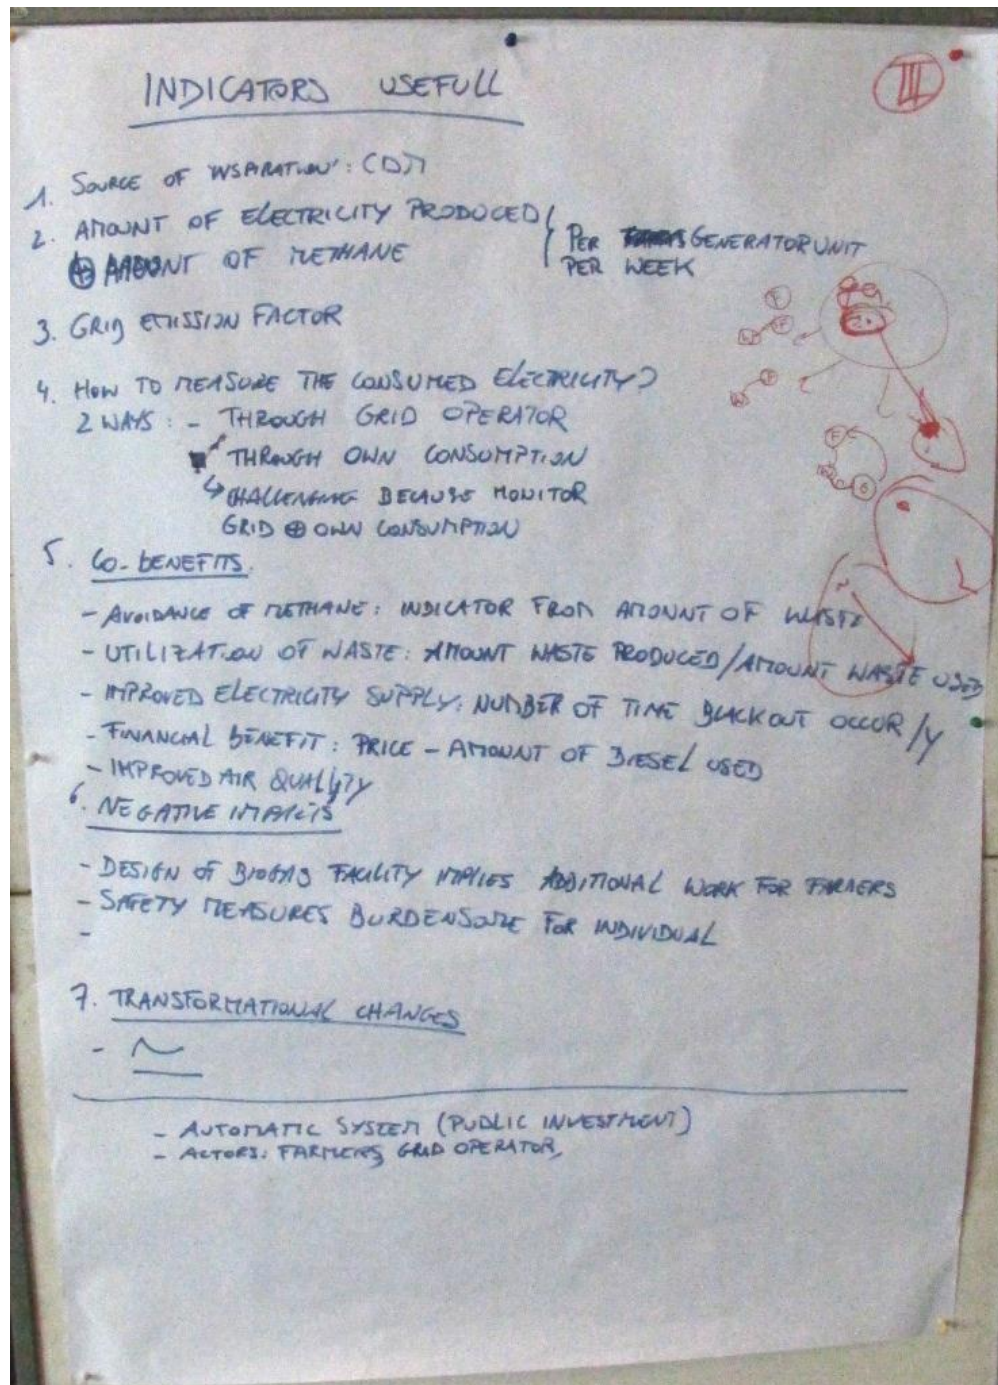 INDICATORS USEFULL
III
1. SOURCE OF 'INSPIRATION': CDM
2. AMOUNT OF ELECTRICITY PRODUCED
⊕ AMOUNT OF METHANE
PER GENERATOR UNIT
PER WEEK
3. GRID EMISSION FACTOR
4. HOW TO MEASURE THE CONSUMED ELECTRICITY?
2 WAYS: - THROUGH GRID OPERATOR
THROUGH OWN CONSUMPTION
↳ CHALLENGING BECAUSE MONITOR
GRID ⊕ OWN CONSUMPTION
5. CO-BENEFITS.
- AVOIDANCE OF METHANE: INDICATOR FROM AMOUNT OF WASTE
- UTILIZATION OF WASTE: AMOUNT WASTE PRODUCED/AMOUNT WASTE USED
- IMPROVED ELECTRICITY SUPPLY: NUMBER OF TIME BLACKOUT OCCUR/Y
- FINANCIAL BENEFIT: PRICE - AMOUNT OF DIESEL USED
- IMPROVED AIR QUALITY
6. NEGATIVE IMPACTS
- DESIGN OF BIOGAS FACILITY IMPLIES ADDITIONAL WORK FOR FARMERS
- SAFETY MEASURES BURDENSOME FOR INDIVIDUAL
-
7. TRANSFORMATIONAL CHANGES
- ~
- AUTOMATIC SYSTEM (PUBLIC INVESTMENT)
- ACTORS: FARMERS, GRID OPERATOR,